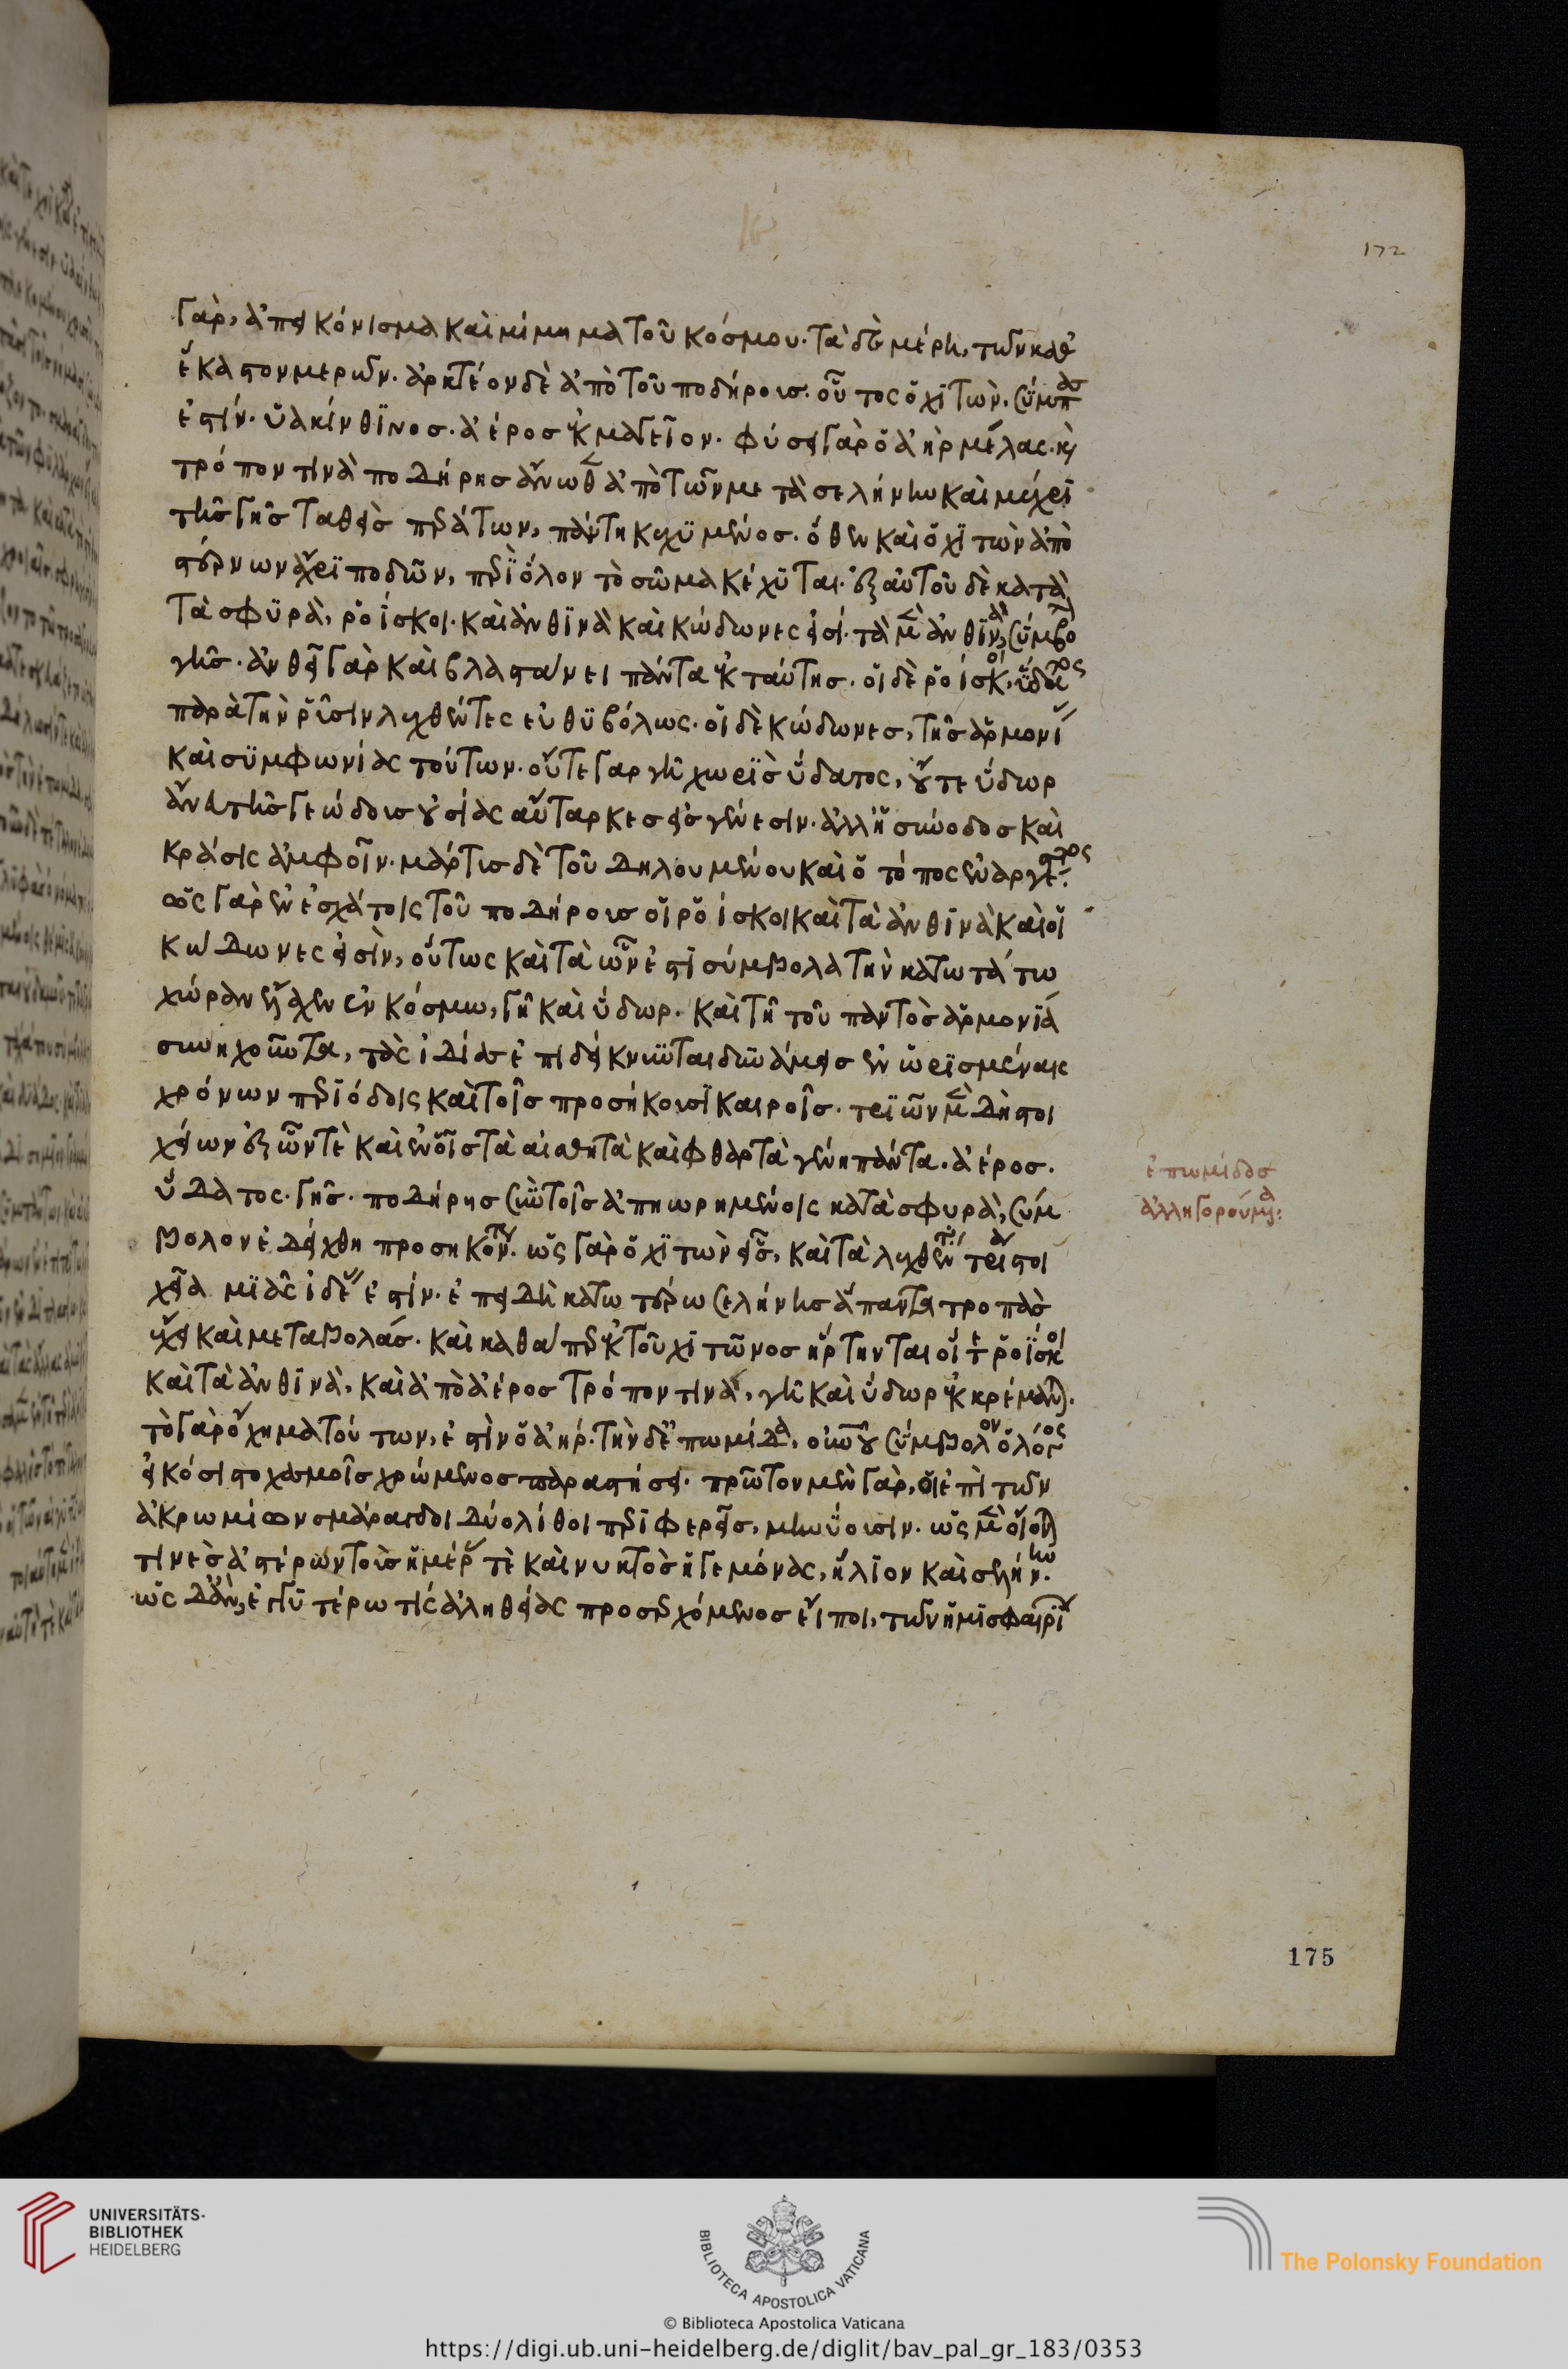 γὰρ, ἀπεικόνισμα καὶ μίμημα τοῦ κόσμου. τὰ δὲ μέρη, τῶν καθ'
ἕκαστον μερῶν. ἀρκτέον δὲ ἀπὸ τοῦ ποδήρους. οὗτος ὁ χϊτών. σύμπας
ἐστίν. ὑακίνθϊνος. ἀέρος ἐκμαγεῖον. φύσει γὰρ ὁ ἀὴρ μέλας. καὶ
τρόπον τινὰ ποδήρης ἄνωθεν ἀπὸ τῶν μετὰ σελήνην καὶ μέχρϊ
τῆς γῆς ταθεὶς περάτων, πάντη κεχϋμένος. ὅθεν καὶ ὁ χϊτὼν ἀπὸ
στέρνων ἄχρϊ ποδῶν, περῒ ὅλον τὸ σῶμα κέχϋται. ἐξ αὐτοῦ δὲ κατὰ
τὰ σφϋρὰ, ῥοΐσκοι. καὶ ἀνθϊνὰ καὶ κώδωνες εἰσί. τὰ μὲν ἀνθϊνὰ, σύμβολον
γῆς. ἀνθεῖ γὰρ καὶ βλαστάνει πάντα ἐκ ταύτης. οἱ δὲ ῥοΐσκοι, ὕδατος
παρὰ τὴν ῥύσιν λεχθέντες εὐθϋβόλως. οἱ δὲ κώδωνες, τῆς ἁρμονίας
καὶ σϋμφωνίας τούτων. οὔτε γαρ γῆ χωρῒς ὕδατος, οὔτε ὕδωρ
ἄνευ τῆς γεώδους οὐσίας αὔταρκες εἰς γένεσιν. ἀλλ' ἡ σύνοδος καὶ
κράσις ἀμφοῖν. μάρτυς δὲ τοῦ δηλουμένου καὶ ὁ τόπος ἐναργέστατος.
ὡς γὰρ ἐν ἐσχάτοις τοῦ ποδήρους οἱ ῥοΐσκοι καὶ τὰ ἀνθϊνὰ καὶ οἱ
κώδωνες εἰσὶν, οὕτως καὶ τὰ ὧν ἐστϊ σύμβολα τὴν κατωτάτω
χώραν εἴληχεν ἐν κόσμω, γῆ καὶ ὕδωρ. καὶ τῆ τοῦ παντὸς ἁρμονϊά
συνηχοῦντα, τὰς ἰδίας ἐπιδείκνυται δυνάμεις ἐν ὡρϊσμέναις
χρόνων περϊόδοις καὶ τοῖς προσήκουσϊ καιροῖς. τρϊῶν μὲν δὴ στοι
χείων ἐξ ὧν τὲ καὶ ἐν οἷς τὰ αἰσθητὰ καὶ φθαρτὰ γένη πάντα. ἀέρος.
ὕδατος. γῆς. ποδήρης σὺν τοῖς ἀπηωρημένοις κατὰ σφυρὰ, σύμ
βολον ἐδείχθη προσηκόντως. ὡς γὰρ ὁ χϊτὼν εἷς, καὶ τὰ λεχθέντα τρία στοι
χεῖα μϊᾶς ἰδέας ἐστίν. ἐπειδὴ κατωτέρω σελήνης ἅπαντα τροπὰς
ἔχει καὶ μεταβολάς. καὶ καθάπερ ἐκ τοῦ χϊτῶνος ἤρτηνται οἵ τε ῥοΐσκοι
καὶ τὰ ἀνθϊνὰ, καὶ ἀπὸ ἀέρος τρόπον τινὰ, γῆ καὶ ὕδωρ ἐκκρέμανται.
τὸ γὰρ ὄχημα τούτων, ἐστὶν ὁ ἀήρ. τὴν δὲ ἐπωμίδα, οὐρανοῦ σύμβολον ὁ λόγος
εἰκόσι στοχασμοῖς χρώμενος παραστήσει. πρῶτον μὲν γὰρ, οἱ ἐπὶ τῶν
ἀκρωμίων σμάραγδοι δύο λίθοι περϊφερεῖς, μηνύουσιν. ὡς μὲν οἴονταί
τινες ἀστέρων τοὺς ἡμέρας τὲ καὶ νυκτὸς ἡγεμόνας, ἥλϊον καὶ σελήνην.
ὡς δ' ἂν, ἐγγϋτέρω τίς ἀληθείας προσερχόμενος εἴποι, τῶν ἡμϊσφαιρϊων
ἐπωμίδος
ἀλληγορούμενα:
172
175
UNIVERSITÄTS-
BIBLIOTHEK
HEIDELBERG
BIBLIOTECA APOSTOLICA VATICANA
The Polonsky Foundation
© Biblioteca Apostolica Vaticana
https://digi.ub.uni-heidelberg.de/diglit/bav_pal_gr_183/0353